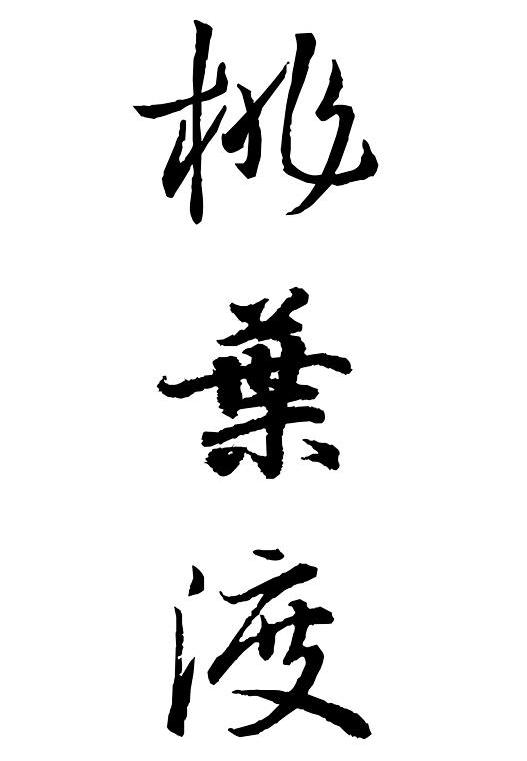 桃葉渡